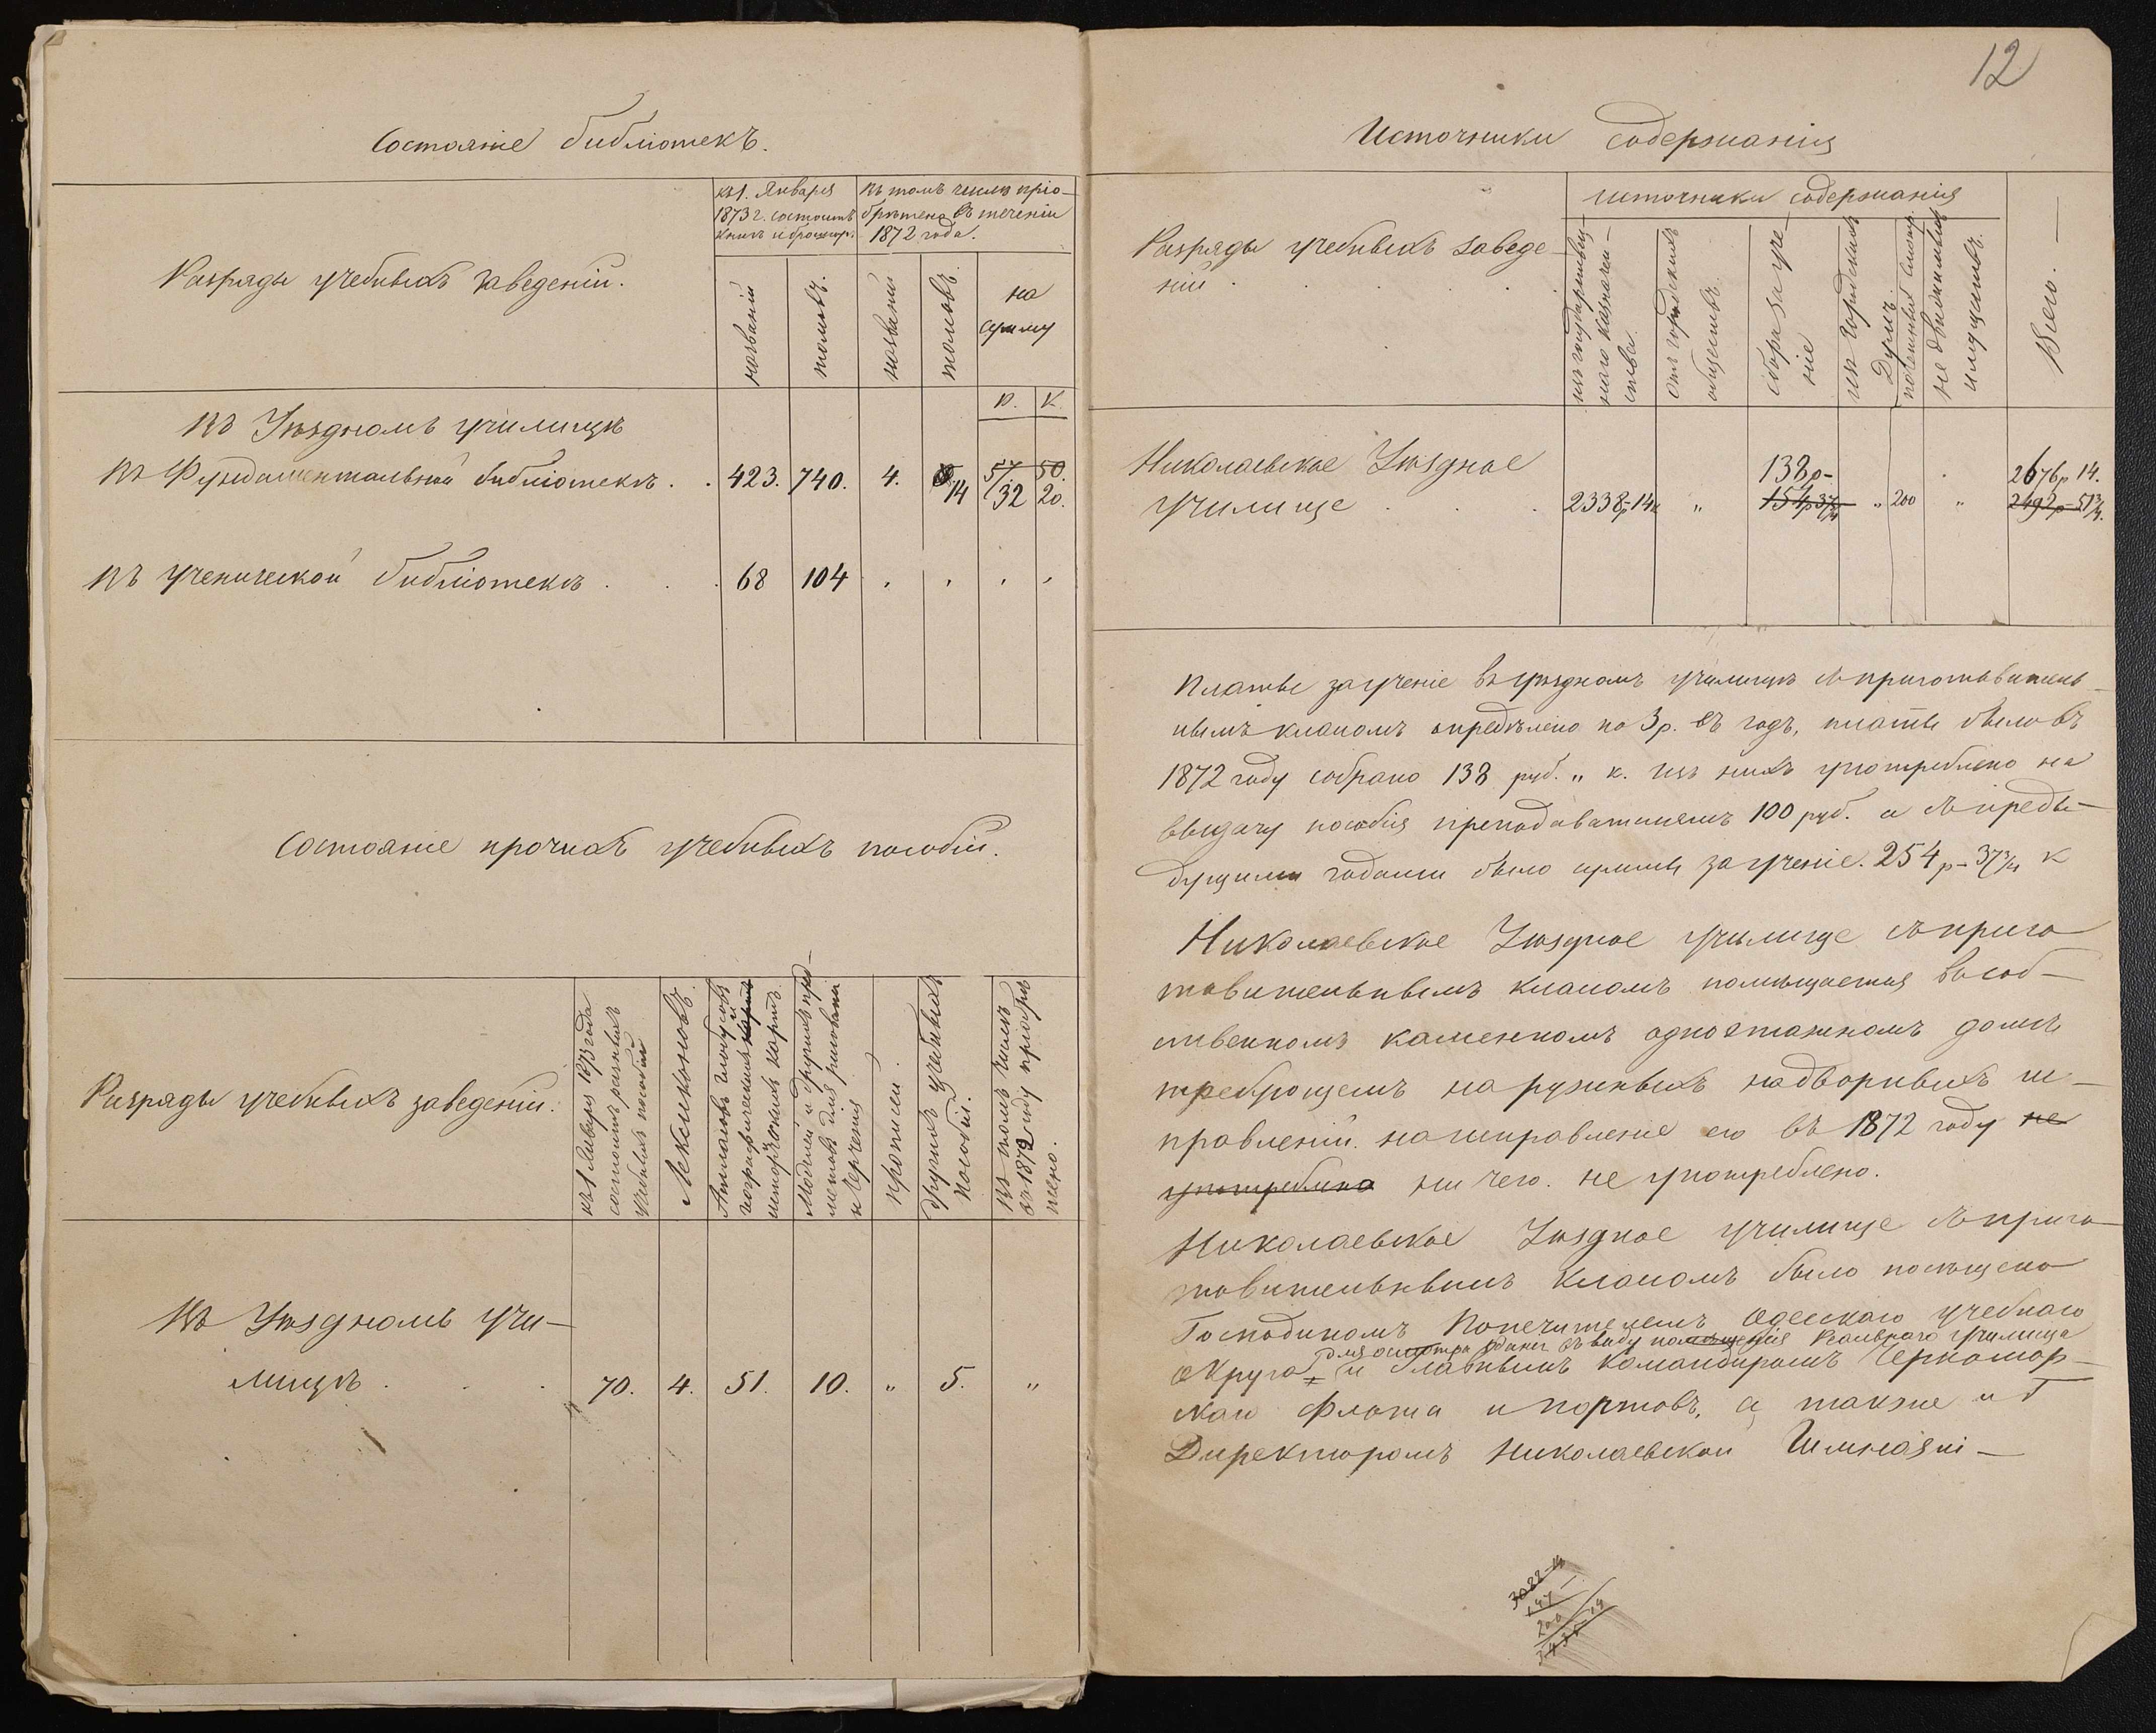 Состояніе библіотекъ.
Разряды учебныхъ заведеній.
къ 1. Января
1873 г. состоитъ
книгъ и брошюр.
въ томъ числѣ пріо-
брѣтено въ теченіи
1872 года.
названій
томовъ.
названій
томовъ.
на
сумму
р. к.
Въ Уѣздномъ училищѣ
Въ Фундаментальной библіотекѣ . . 423. 740. 4. 14 57 50.
32 20.
Въ ученической библіотекѣ . . . 68 104 " " " "
Состояніе прочихъ учебныхъ пособій.
Разряды учебныхъ заведеній.
къ 1 Января 1873 года
состоитъ разныхъ
учебныхъ пособій
Лексиконовъ.
Атласовъ глобусовъ
географическихъ картъ и
историческихъ картъ.
Моделей и другихъ пред-
метовъ для рисованія
и черченія
прописи.
другихъ учебныхъ
пособій.
въ томъ числѣ
въ 1872 году пріобрѣ
тено.
Въ Уѣздномъ учи-
лищѣ . . . 70. 4. 51. 10. " 5. "
12
Источники содержанія
Разряды учебныхъ заведе-
ній . . . .
источники содержанія
изъ государствен-
наго казначей-
ства.
отъ городскихъ
обществъ.
сборъ за уче-
ніе
изъ городскихъ
Думъ.
не движимыхъ
имуществъ.
Всего. —
Николаевское Уѣздное
училище . . . 2338р-14к " 138р- " 200 " 2676р 14.
154р 37¾ 2492р-51¾.
Платы за ученіе въ уѣздномъ училищѣ съ приготовитель-
нымъ класомъ опредѣлено по 3 р. въ годъ, платы было въ
1872 году собрано 138 руб. " к. изъ нихъ употреблено на
выдачу пособія преподавателямъ 100 руб. а съ преды-
дущими годами было суммы за ученіе. 254 р- 37¾ к
Николаевское Уѣздное училище съ приго
товительнымъ класомъ помѣщается въ соб-
ственномъ каменномъ одноэтажномъ домѣ
требующемъ наружныхъ надворныхъ ис-
правленій. на исправленіе его въ 1872 году не
употреблено ни чего. не употреблено.
Николаевское Уѣздное училище съ приго-
товительнымъ класомъ было посѣщено
Господиномъ Попечителемъ Одесскаго учебнаго
для осмотра зданія въ виду помѣщенія Реальнаго училища
Округа и Главнымъ Командиромъ Черномор-
скаго Флота и портовъ, а также и Г
Директоромъ Николаевской Гимназіи —
200